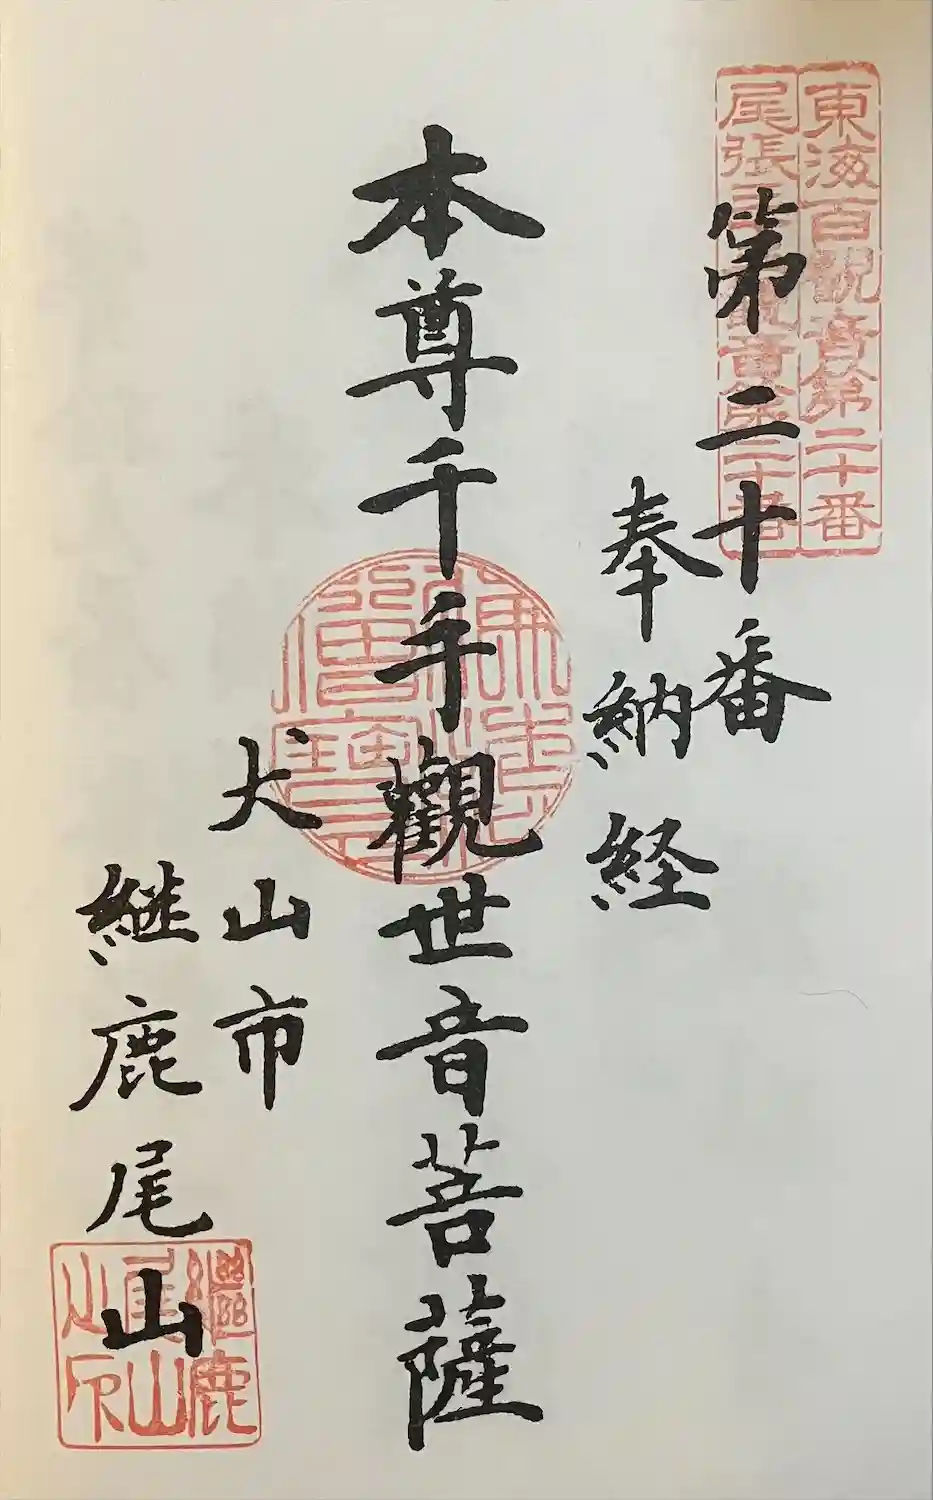 東海百観音第二十番
尾張三十三観音第二十番
第二十番
奉納経
本尊千手觀世音菩薩
犬山市
継鹿尾山
継鹿尾山之印